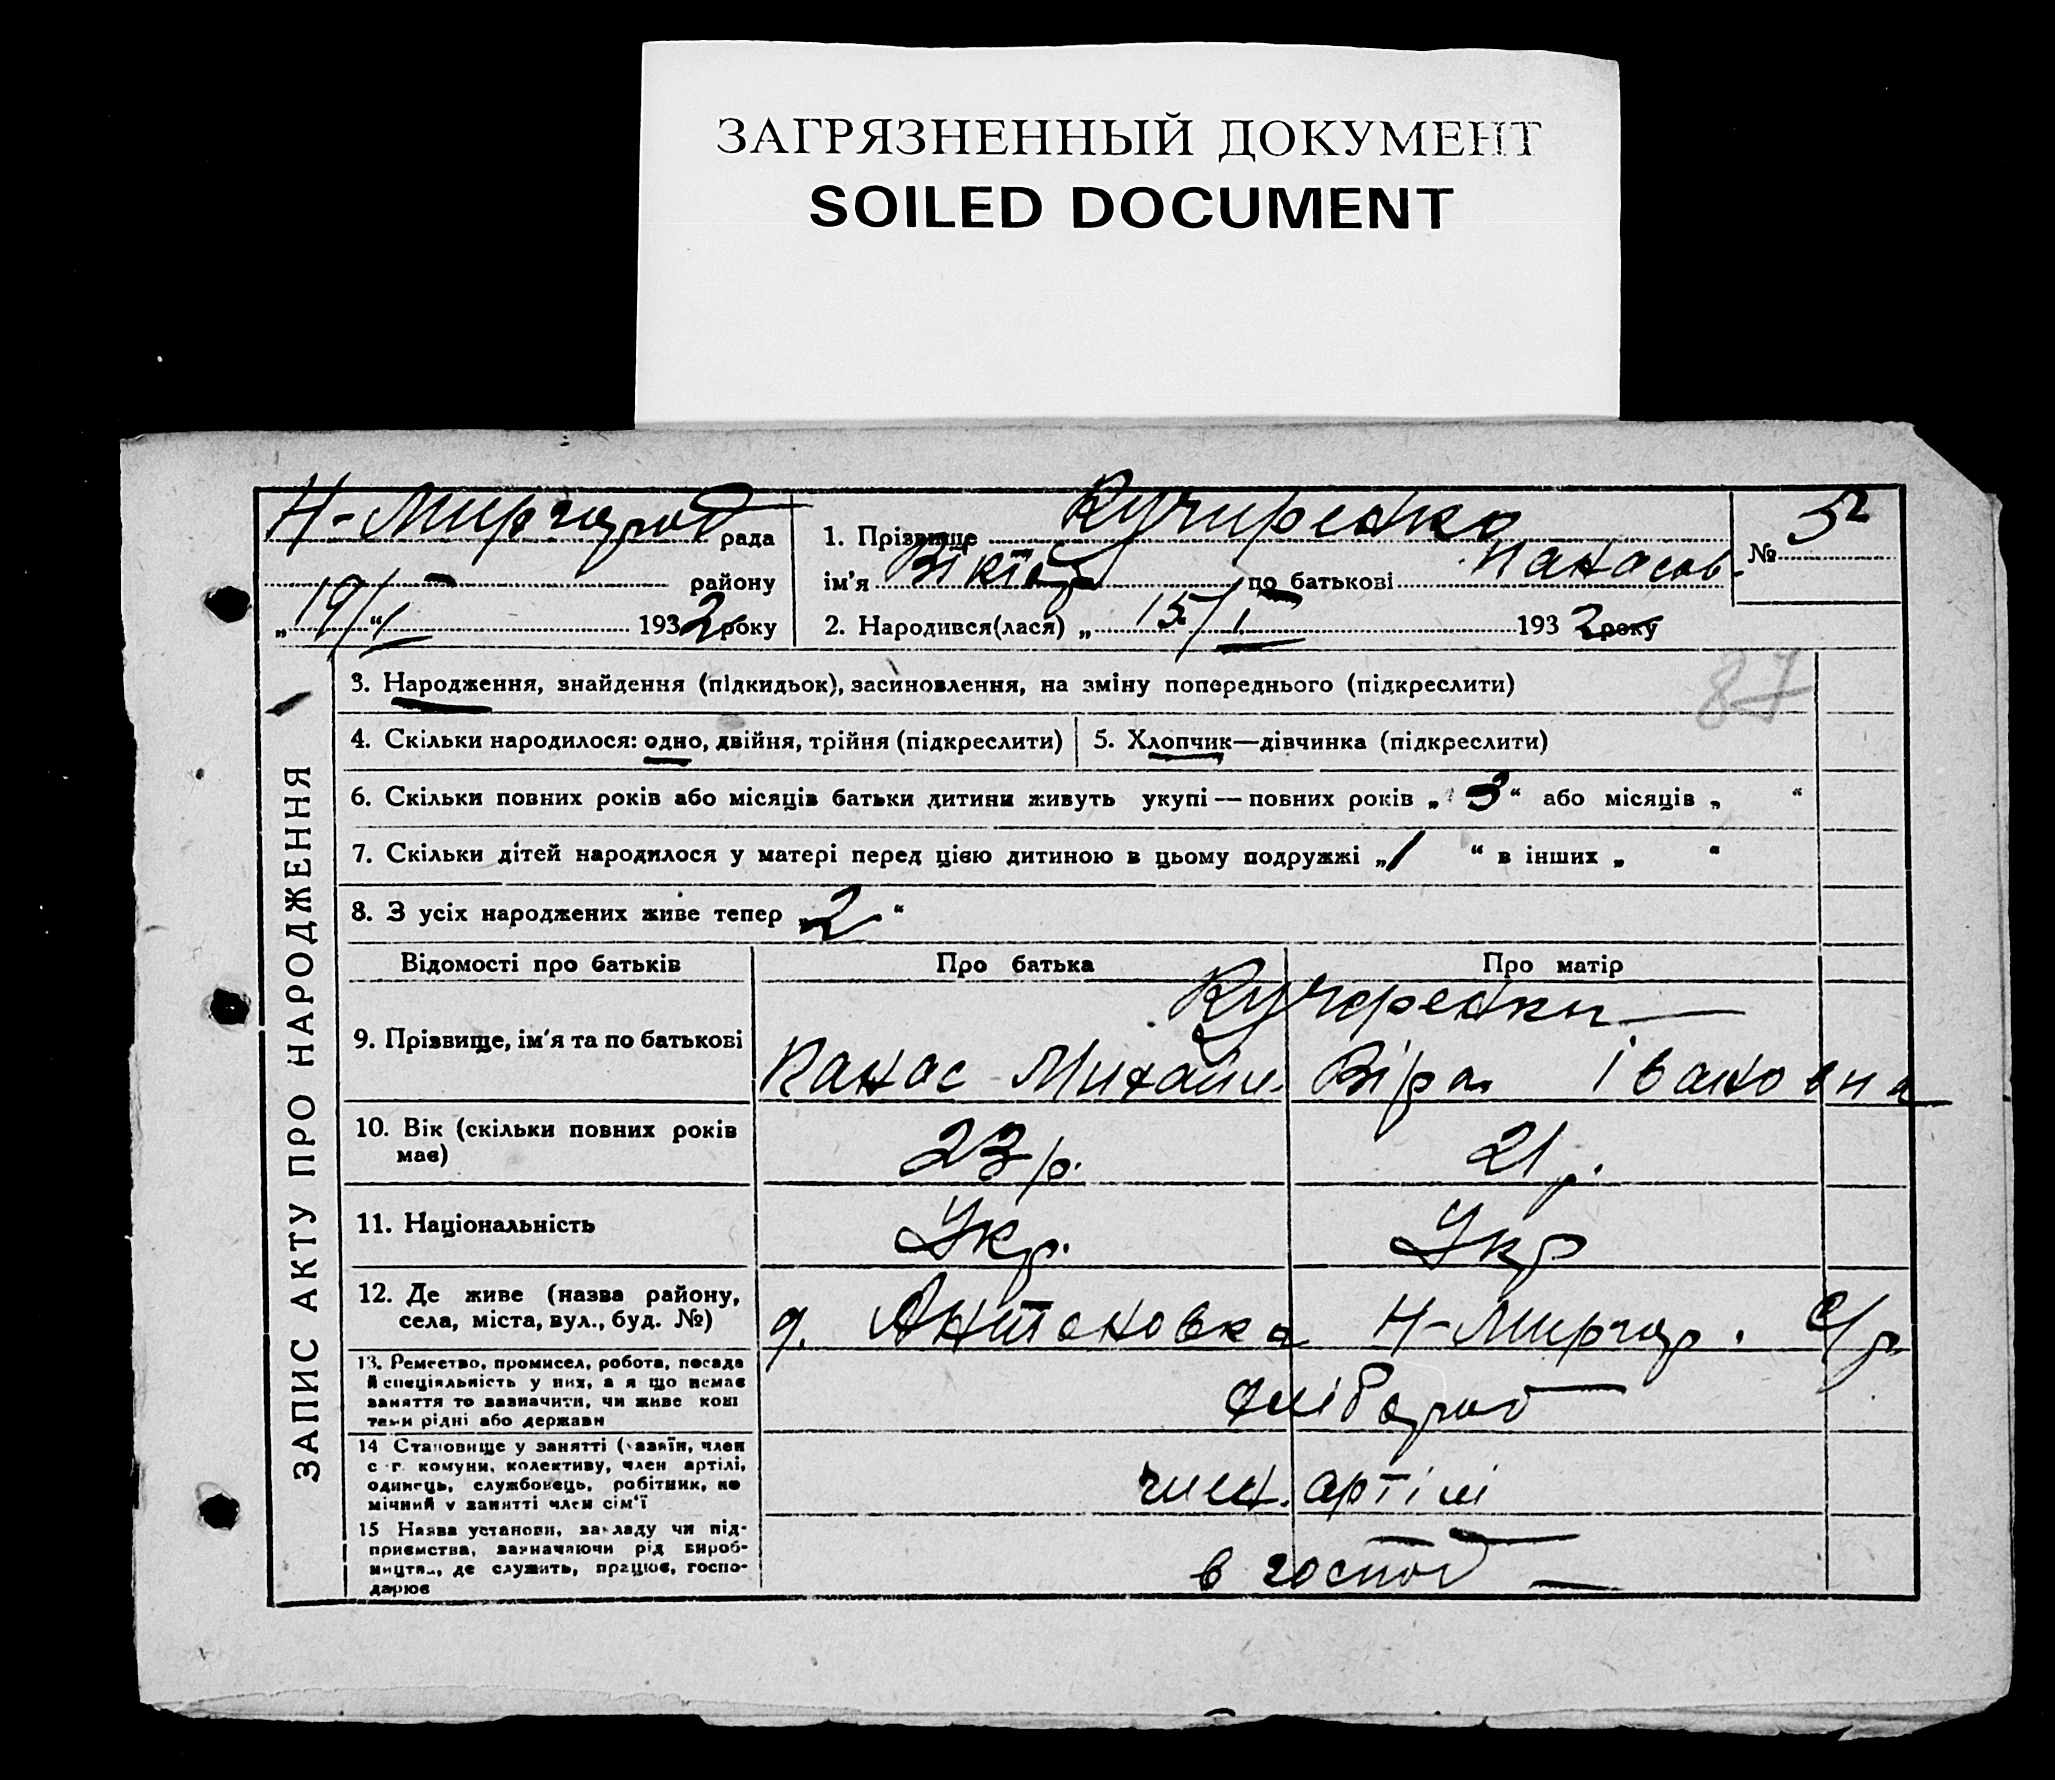 ЗАГРЯЗНЕННЫЙ ДОКУМЕНТ
SOILED DOCUMENT
Н-Миргород рада
району
„19/I“ 1932 року
1. Прізвище Кучиренко
ім'я Віктор по батькові Панасов.
2. Народився(лася) „15/I 1932 року
№ 52
87
ЗАПИС АКТУ ПРО НАРОДЖЕННЯ
3. Народження, знайдення (підкидьок), засиновлення, на зміну попереднього (підкреслити)
4. Скільки народилося: одно, двійня, трійня (підкреслити)
5. Хлопчик—дівчинка (підкреслити)
6. Скільки повних років або місяців батьки дитини живуть укупі — повних років „3“ або місяців „ “
7. Скільки дітей народилося у матері перед цією дитиною в цьому подружжі „1 “ в інших „ “
8. З усіх народжених живе тепер „2“
Відомості про батьків Про батька Про матір
Кучиренки
9. Прізвище, ім'я та по батькові Панас Михайл. Віра Івановна
10. Вік (скільки повних років має) 23 р. 21 р.
11. Національність Укр. Укр
12. Де живе (назва району,
села, міста, вул., буд. №) д. Антоновка Н-Миргор. с/р.
13. Ремество, промисел, робота, посада
й спеціяльність у них, а я що немає
заняття то зазначити, чи живе кош
тами рідні або держави
хлібороб
14 Становище у занятті (хазяїн, член
с.-г. комуни, колективу, член артілі,
одинець, службовець, робітник, по
мічний у занятті член сім'ї
член. артілі
15 Назва установи, закладу чи під-
приємства, зазначаючи рід вироб-
ництва, де служить, працює, госпо-
дарює
в господ